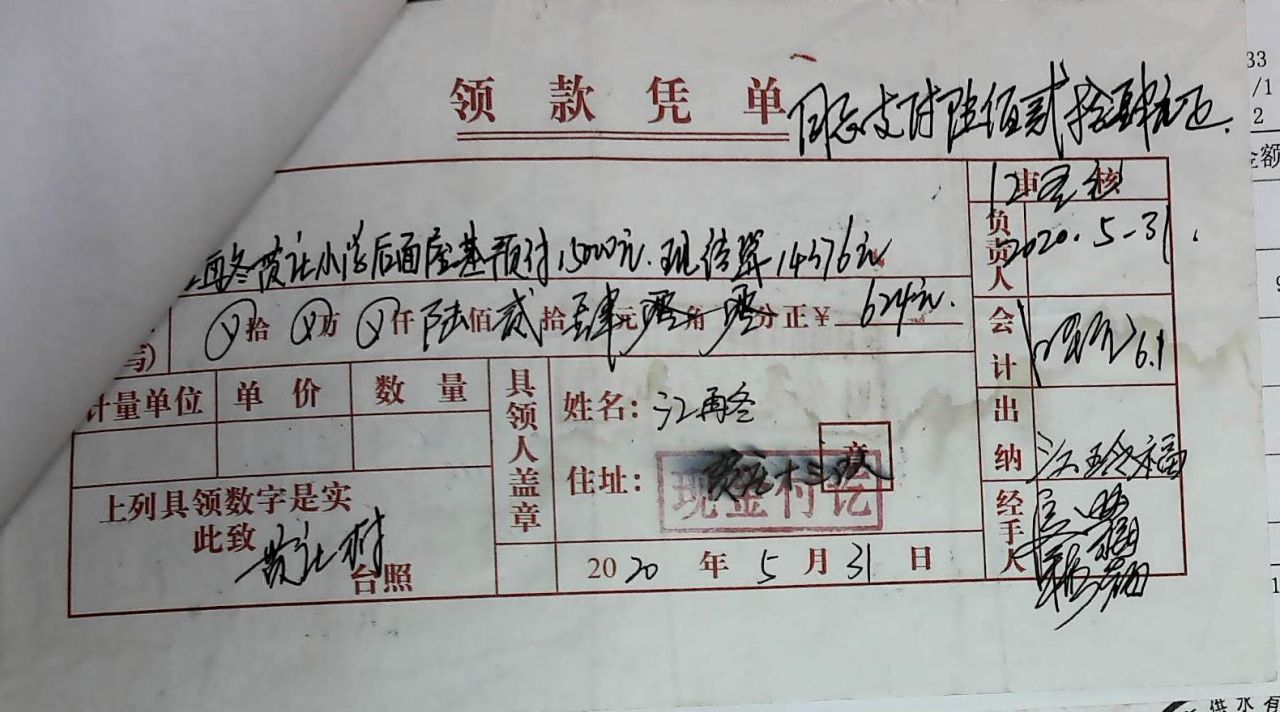 领款凭单
同意支付陆佰贰拾肆元正.
审核
再冬黄让小学后面屋基预付15000元.现结算14376元
负责人
2020.5-31.
写)
拾 万 仟陆佰贰拾肆元零角零分正￥624元.
会计
6.1
计量单位 单价 数量
具领人盖章
姓名:江再冬
住址:
章
现金付讫
出纳
上列具领数字是实
此致
台照
经手人
2020年5月31日
33
/1
2
金额
供水有